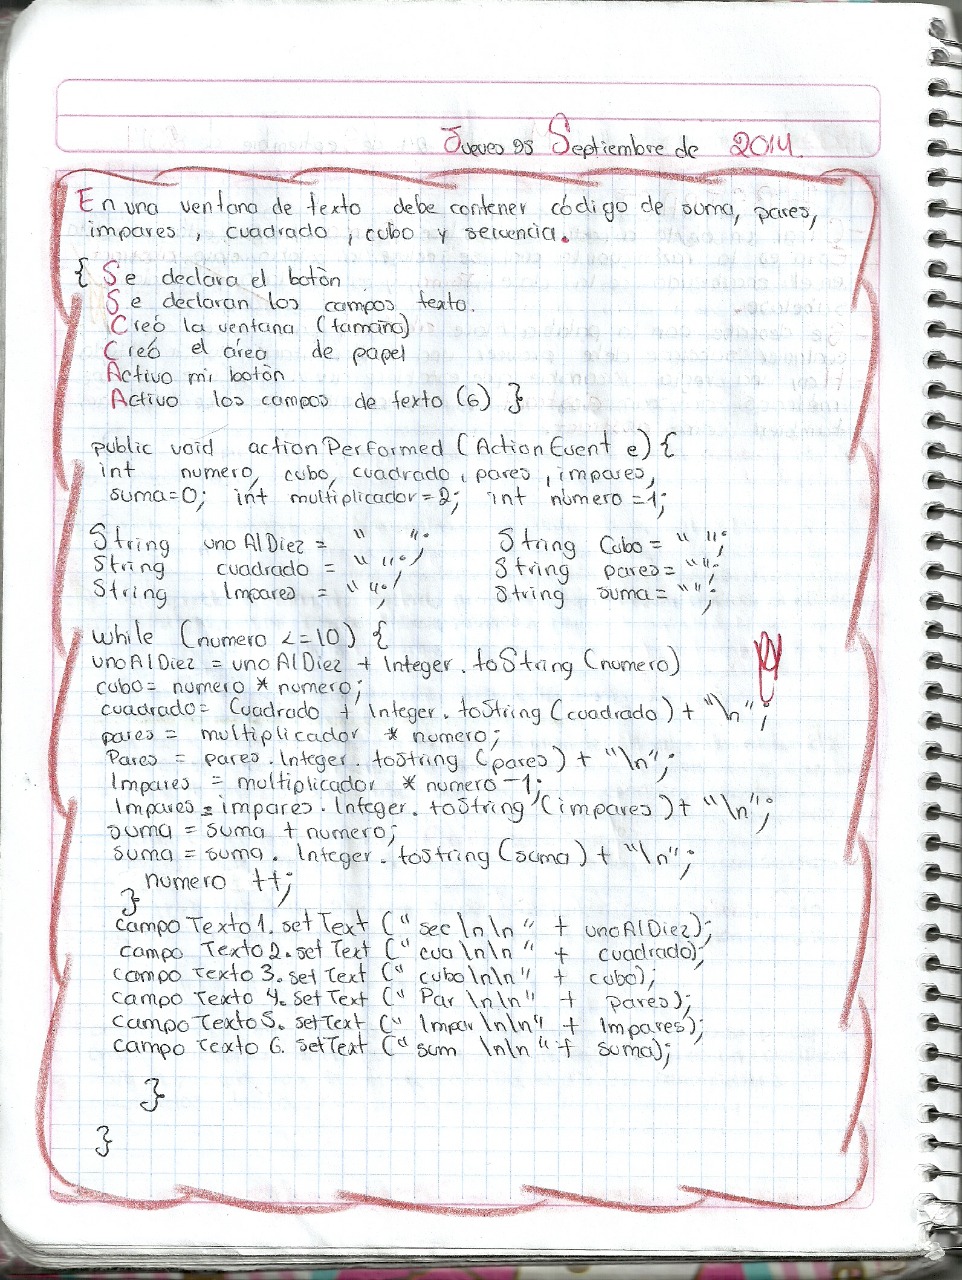 Jueves 25 Septiembre de 2014.
En una ventana de texto debe contener código de suma, pares,
impares, cuadrado, cubo y secuencia.
{ Se declara el botón
Se declaran los campos texto.
Creó la ventana (tamaño)
Creó el área de papel
Activo mi botón
Activo los campos de texto (6) }
public void actionPerformed (ActionEvent e) {
int numero, cubo, cuadrado, pares, impares,
suma=0; int multiplicador=2; int número =1;
String unoAlDiez = " "; String Cubo = " ";
String cuadrado = " "; String pares= "";
String Impares = " "; String suma= "";
while (numero <=10) {
unoAlDiez = unoAlDiez + Integer.toString (numero)
cubo= numero * numero;
cuadrado= Cuadrado + Integer.toString (cuadrado) + "\n";
pares = multiplicador * numero;
Pares = pares.Integer.tostring (pares) + "\n";
Impares = multiplicador * numero -1;
Impares = impares.Integer.toString (impares) + "\n";
suma = suma + numero;
suma = suma. Integer.tostring (suma) + "\n";
numero ++;
}
campo Texto1.setText (" sec \n\n " + unoAlDiez);
campo Texto2.setText (" cua \n\n " + cuadrado);
campo Texto 3.setText (" cubo \n\n" + cubo);
campo Texto 4.setText (" Par \n\n" + pares);
campo Texto5.setText (" Impar \n\n" + Impares);
campo Texto 6.setText (" sum \n\n "+ suma);
}
}